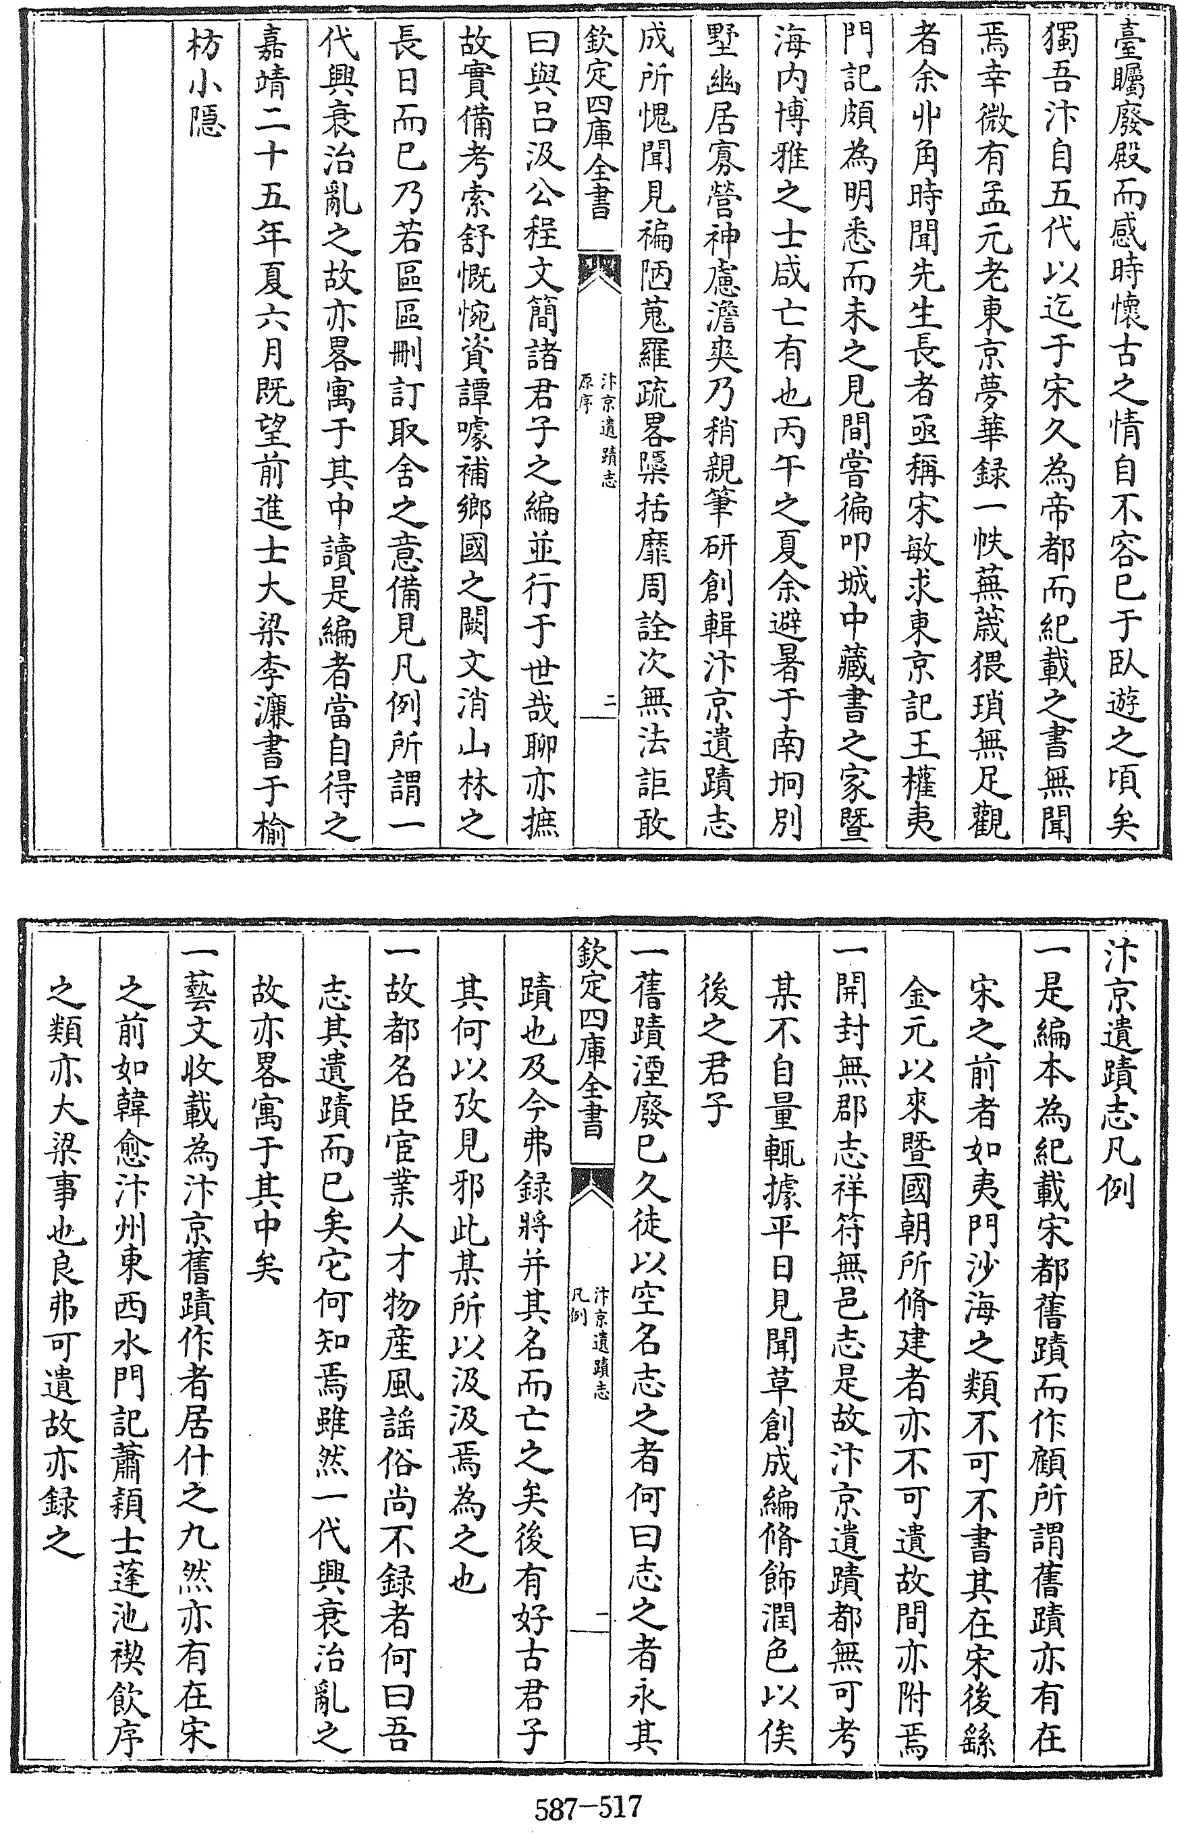 臺矚廢殿而感時懷古之情自不容已于臥遊之頃矣
獨吾汴自五代以迄于宋久為帝都而紀載之書無聞
焉幸微有孟元老東京夢華録一帙蕪蔵猥瑣無足觀
者余丱角時聞先生長者亟稱宋敏求東京記王權夷
門記頗為明悉而未之見間嘗徧叩城中藏書之家暨
海内博雅之士咸亡有也丙午之夏余避暑于南坰別
墅幽居寡營神慮澹爽乃稍親筆研創輯汴京遺蹟志
成所愧聞見褊陋蒐羅疏畧櫽括靡周詮次無法詎敢
欽定四庫全書
汴京遺蹟志
原序
二
曰與呂汲公程文簡諸君子之編並行于世哉聊亦摭
故實備考索舒慨惋資譚噱補鄉國之闕文消山林之
長日而已乃若區區刪訂取舍之意備見凡例所謂一
代興衰治亂之故亦畧寓于其中讀是編者當自得之
嘉靖二十五年夏六月既望前進士大梁李濂書于榆
枋小隱
汴京遺蹟志凡例
一是編本為紀載宋都舊蹟而作顧所謂舊蹟亦有在
宋之前者如夷門沙海之類不可不書其在宋後繇
金元以來暨國朝所脩建者亦不可遺故間亦附焉
一開封無郡志祥符無邑志是故汴京遺蹟都無可考
某不自量輒據平日見聞草創成編脩飾潤色以俟
後之君子
一舊蹟湮廢已久徒以空名志之者何曰志之者永其
欽定四庫全書
汴京遺蹟志
凡例
一
蹟也及今弗録將并其名而亡之矣後有好古君子
其何以攷見邪此某所以汲汲焉為之也
一故都名臣宦業人才物産風謡俗尚不録者何曰吾
志其遺蹟而已矣它何知焉雖然一代興衰治亂之
故亦畧寓于其中矣
一藝文收載為汴京舊蹟作者居什之九然亦有在宋
之前如韓愈汴州東西水門記蕭穎士蓬池禊飲序
之類亦大梁事也良弗可遺故亦録之
587-517